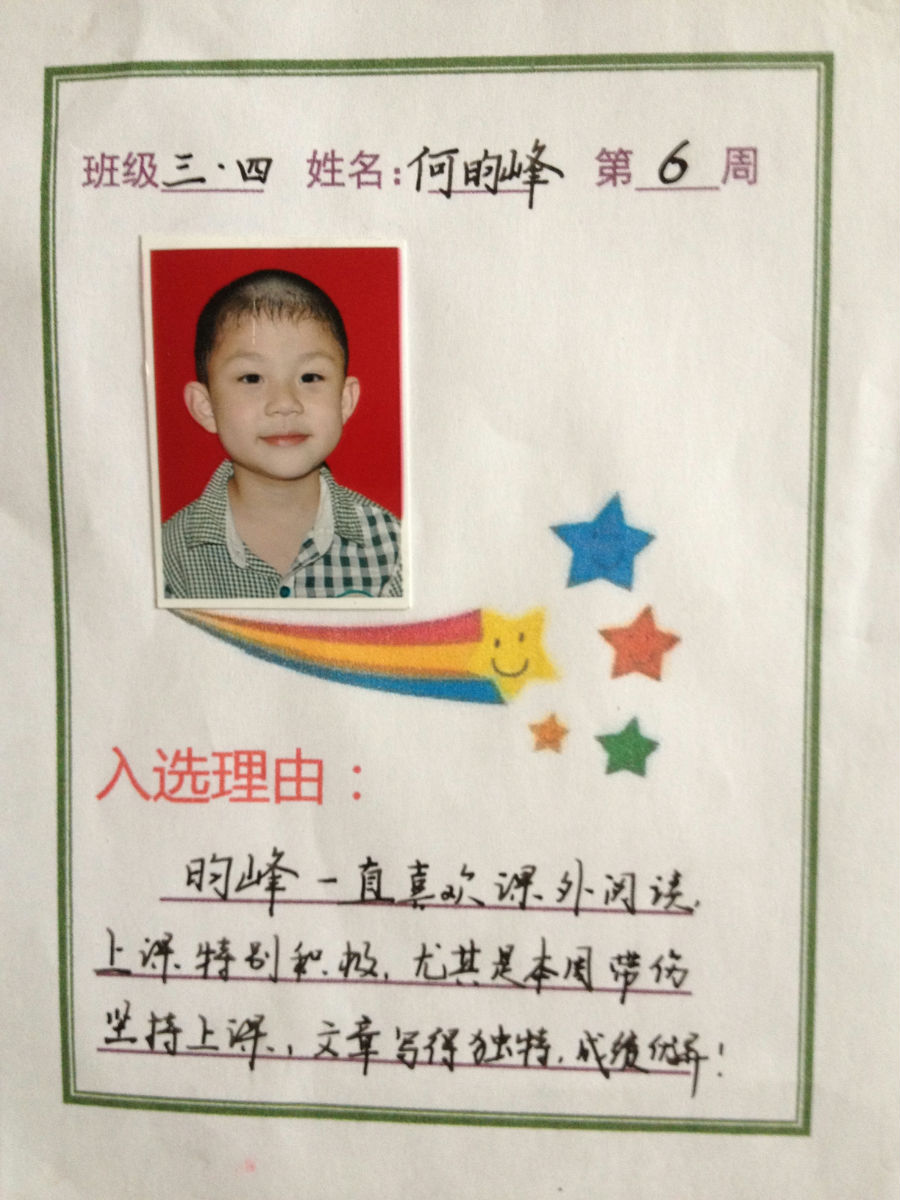 班级三·四 姓名:何昀峰 第6周
入选理由:
昀峰一直喜欢课外阅读,
上课特别积极,尤其是本周带伤
坚持上课,文章写得独特,成绩优异!